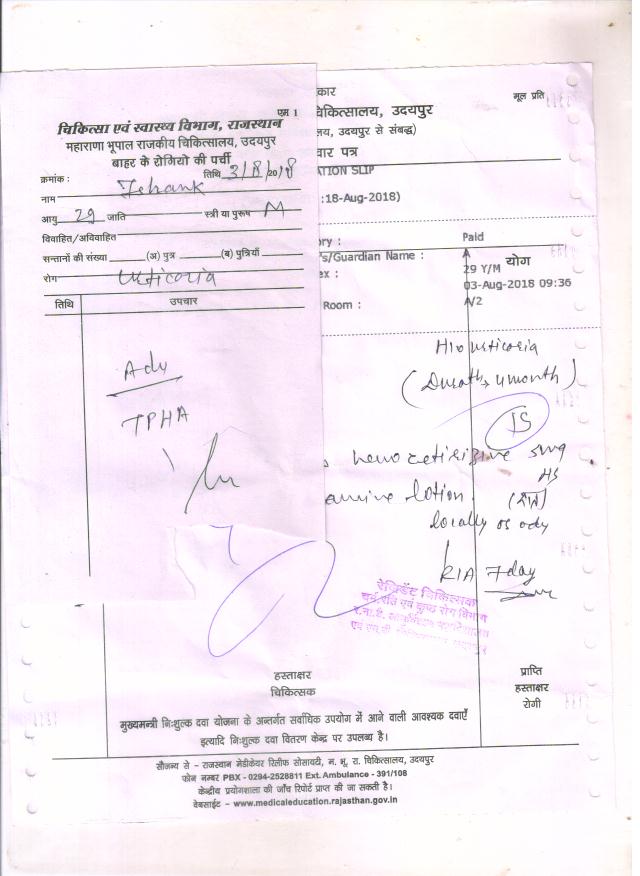 एम 1
चिकित्सा एवं स्वास्थ्य विभाग, राजस्थान
महाराणा भूपाल राजकीय चिकित्सालय, उदयपुर
बाहर के रोगियो की पर्ची
क्रमांक : तिथि 3/8/2018
नाम
आयु 29 जाति स्त्री या पुरूष M
विवाहित/अविवाहित
सन्तानों की संख्या (अ) पुत्र (ब) पुत्रियाँ
रोग Urticaria
तिथि उपचार
Adv
TPHA
कार
मूल प्रति
चिकित्सालय, उदयपुर
लय, उदयपुर से संबद्ध)
वार पत्र
ATION SLIP
:18-Aug-2018)
ory : Paid
's/Guardian Name :
योग
ex : 29 Y/M
03-Aug-2018 09:36
Room : A/2
H/o urticaria
4 month)
levocetirizine 5mg
HS
amine lotion
locally
7day
रेजिडेंट चिकित्सक
हस्ताक्षर
चिकित्सक
प्राप्ति
हस्ताक्षर
रोगी
मुख्यमन्त्री निःशुल्क दवा योजना के अन्तर्गत सर्वाधिक उपयोग में आने वाली आवश्यक दवाएँ
इत्यादि निःशुल्क दवा वितरण केन्द्र पर उपलब्ध है।
सौजन्य से - राजस्थान मेडीकेयर रिलीफ सोसायटी, म. भू. रा. चिकित्सालय, उदयपुर
फोन नम्बर PBX - 0294-2528811 Ext. Ambulance - 391/108
केन्द्रीय प्रयोगशाला की जाँच रिपोर्ट प्राप्त की जा सकती है।
वेबसाईट - www.medicaleducation.rajasthan.gov.in